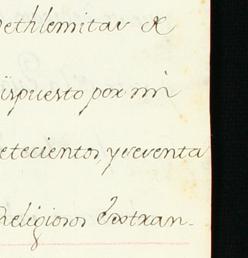 Bethlemitas de
dispuesto por mi
setecientos y sesenta
Religiosos Extran-